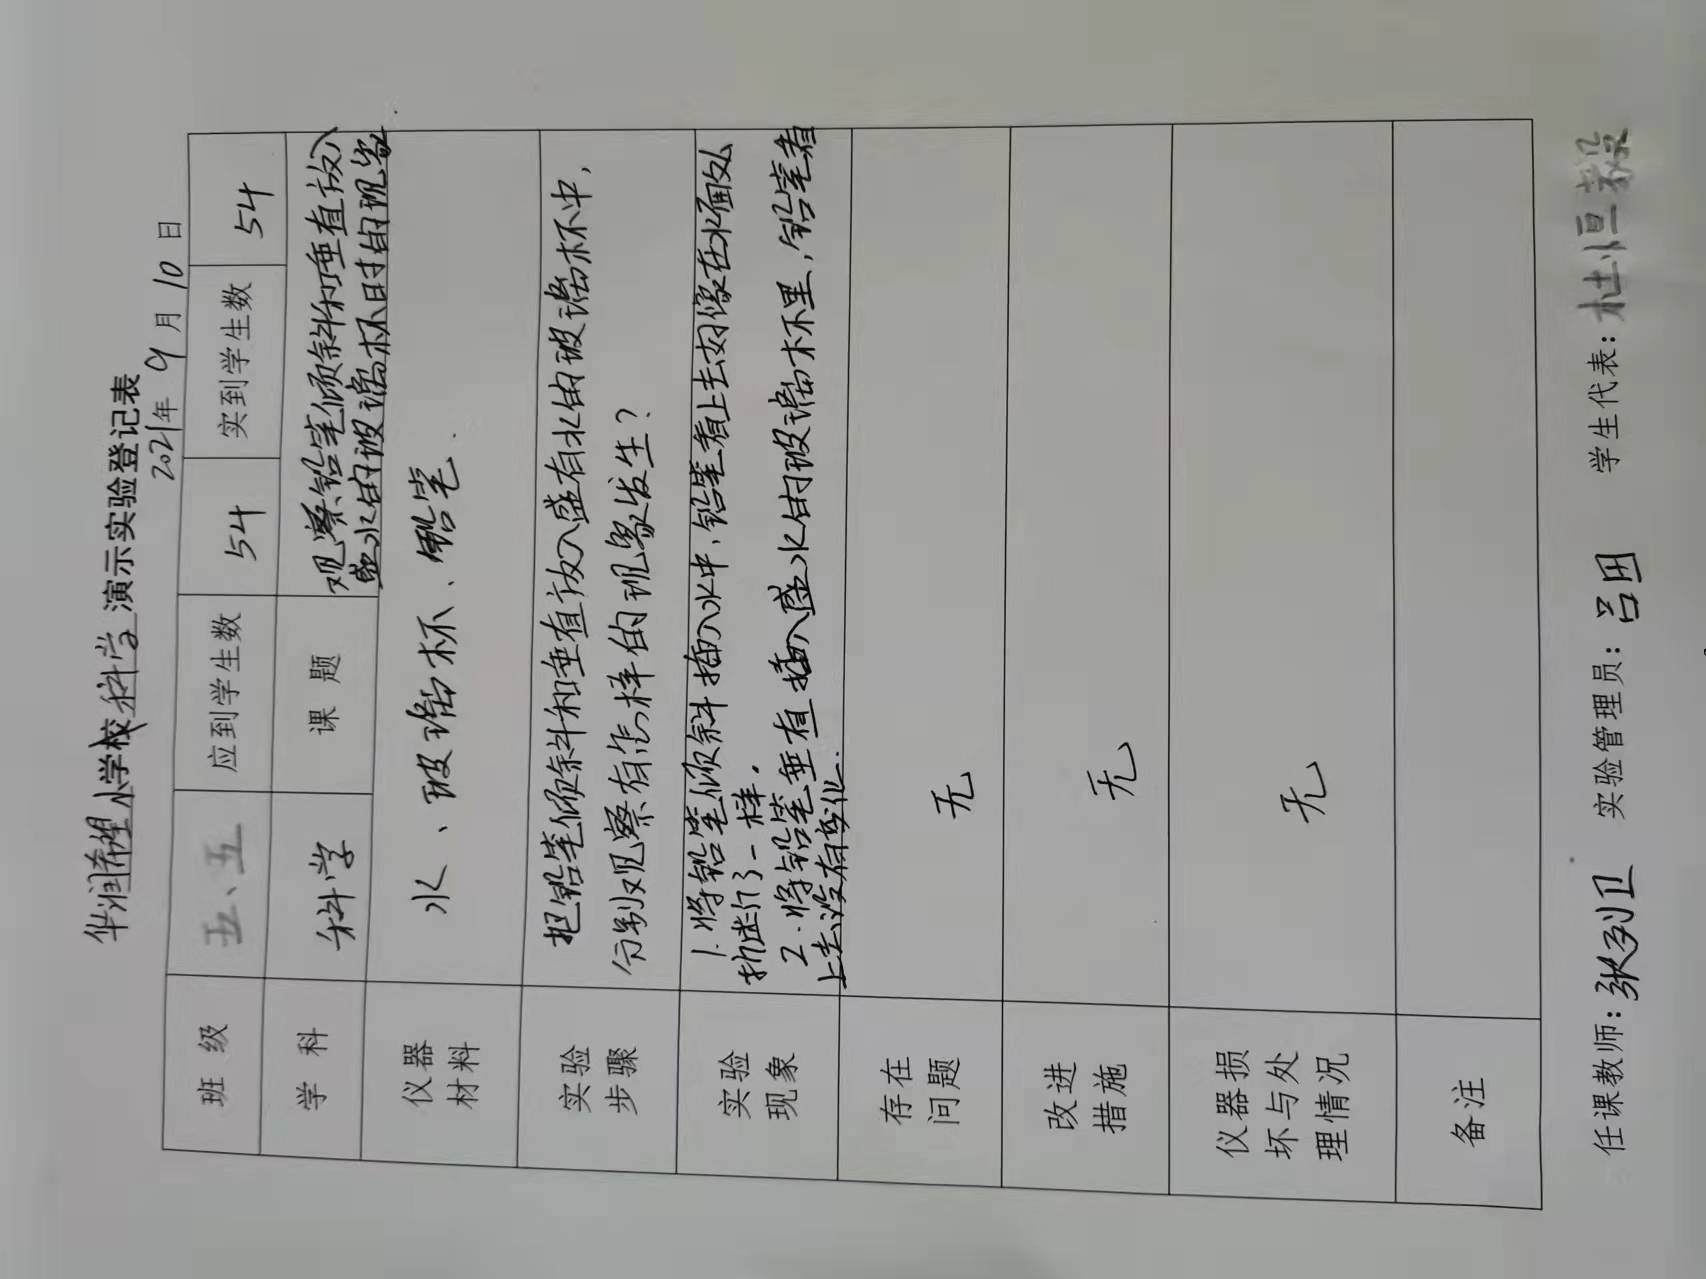 华润希望小学校科学演示实验登记表
2021年9月10日
班级 五、五 应到学生数 54 实到学生数 54
学科 科学 课题 观察铅笔倾斜和垂直放入
盛水的玻璃杯时的现象
仪器
材料
水、玻璃杯、铅笔.
实验
步骤
把铅笔倾斜和垂直放入盛有水的玻璃杯中,
分别观察有怎样的现象发生?
实验
现象
1.将铅笔倾斜插入水中,铅笔看上去好像在水面处
折断了一样.
2.将铅笔垂直插入盛水的玻璃杯里,铅笔看
上去没有变化.
存在
问题
无
改进
措施
无
仪器损
坏与处
理情况
无
备注
任课教师:张列卫 实验管理员:吕田 学生代表:杜恒毅